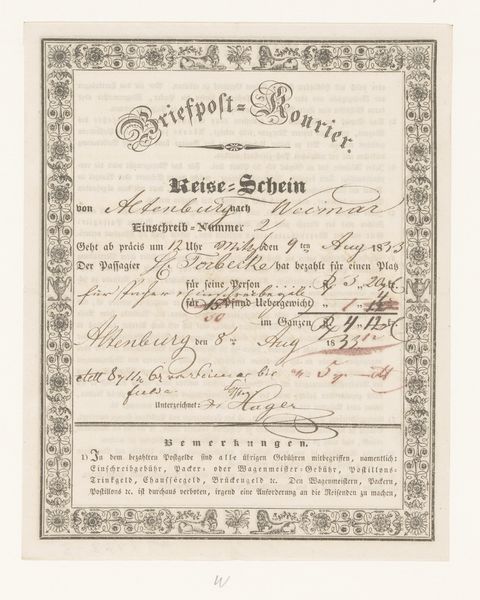 Briefpost-Kourier.
Reise-Schein
von Altenburg nach Weimar
Einschreib-Nummer 2
Geht ab präcis um 12 Uhr Mittg den 9 ten Aug 1833
Der Passagier H. Torbecke hat bezahlt für einen Platz
für seine Person 3 " 20
für Pfund Uebergewicht) " 1
im Ganzen 4 " 12
Altenburg den 8 Aug 1833
Unterzeichnet: Hager
Bemerkungen.
1) In dem bezahlten Postgelde sind alle übrigen Gebühren mitbegriffen, namentlich:
Einschreibgebühr, Packer- oder Wagenmeister-Gebühr, Postillons-
Trinkgeld, Chausséegeld, Brückengeld ꝛc. Den Wagenmeistern, Packern,
Postillons ꝛc. ist durchaus verboten, irgend eine Anforderung an die Reisenden zu machen,
W